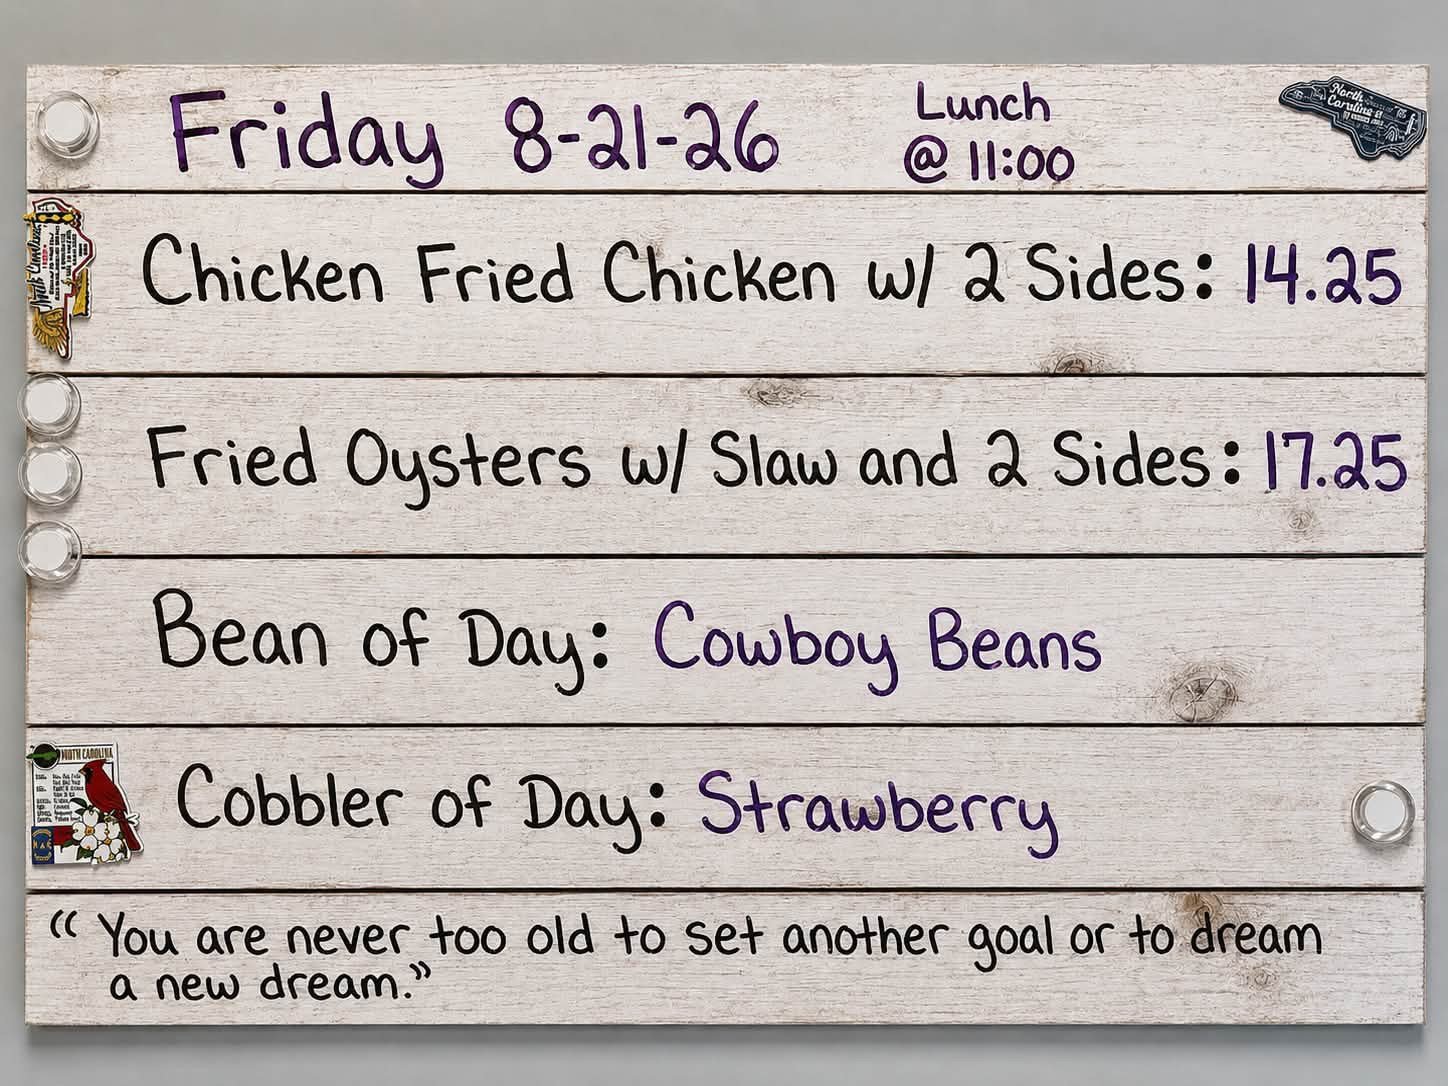 Friday 8-21-26
Lunch
@ 11:00
North
Carolina
Chicken Fried Chicken w/ 2 Sides: 14.25
Fried Oysters w/ Slaw and 2 Sides: 17.25
Bean of Day: Cowboy Beans
NORTH CAROLINA
Cobbler of Day: Strawberry
“You are never too old to set another goal or to dream
a new dream.”